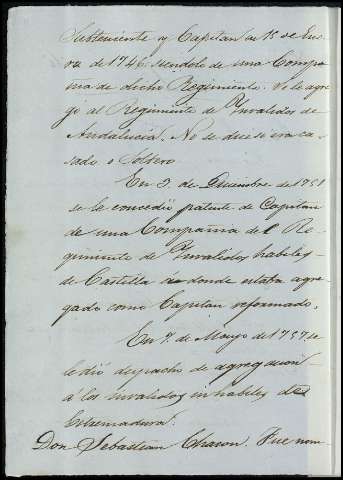 Subteniente y Capitan en 15 de Ene-
ro de 1746 siendolo de una Compa-
ñia de dicho Regimiento. Se le agre-
gó al Regimiento de Ynvalidos de
Andalucia. No se dice si era ca-
sado o soltero.
En 3 de Diciembre de 1751
se le concedió patente de Capitan
de una Compañia del Re-
gimiento de Ynvalidos habiles
de Castilla donde estaba agre-
gado como Capitan reformado.
En 7 de Mayo de 1757 se
le dió despacho de agregacion
á los invalidos inhabiles de
Extremadura.
Don Sebastian Charon. Fue nom-